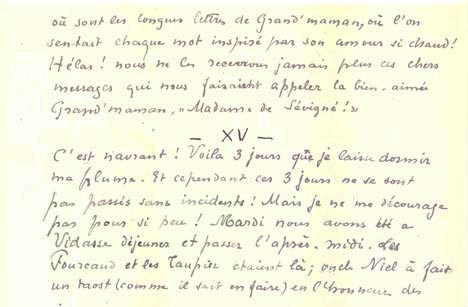 où sont les longues lettres de Grand'maman, où l'on
sentait chaque mot inspiré par son amour si chaud!
Hélas! nous ne les recevrons jamais plus ces chers
messages qui nous faisaient appeler la bien-aimée
Grand'maman, "Madame de Sévigné!"
- XV -
C'est navrant! Voilà 3 jours que je laisse dormir
ma plume. Et cependant ces 3 jours ne se sont
pas passés sans incidents! Mais je ne me décourage
pas pour si peu! Mardi nous avons été a
Vidasse déjeuner et passer l'après-midi. Les
Fourcaud et les Taupier étaient là; oncle Niel à fait
un toast (comme il sait en faire) en l'honneur des